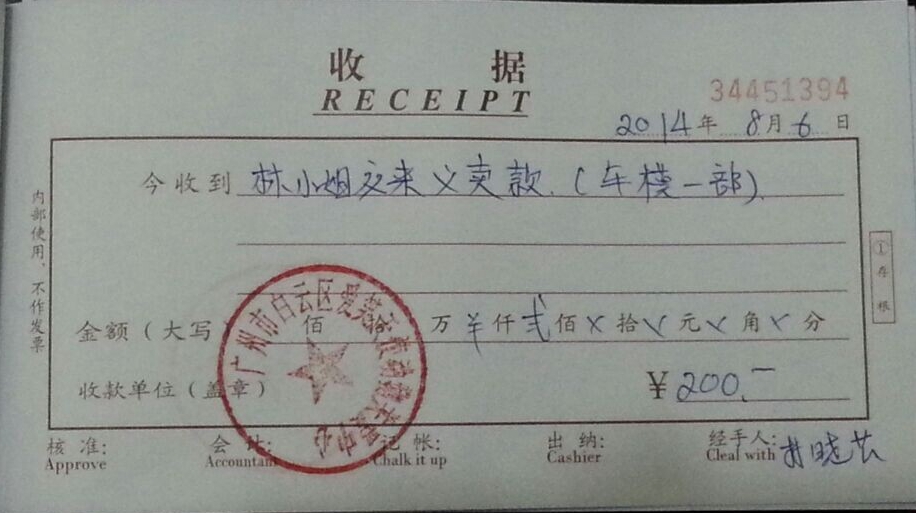 收 据
RECEIPT
34451394
2014年 8月 6 日
今收到 林小姐交来义卖款.(车模一部).
金额(大写) 佰 拾 万 羊 仟 贰 佰 × 拾 × 元 × 角 × 分
收款单位(盖章) ¥ 200.一
核 准: 会 计: 记 帐: 出 纳: 经手人:
Approve Accountant Chalk it up Cashier Cleal with
内部使用、不作发票
①存根
广州市白云区爱
中心